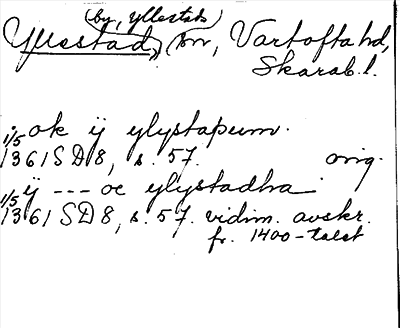 (by, yllestads)
Yllestad, sn, Vartofta hd,
Skarab. l.
ok ij ylystaþum.
1/5 1361 SD 8, s. 57. orig.
ij --- oc ylystadha
1/5 1361 SD 8, s. 57. vidim. avskr.
fr. 1400-talet